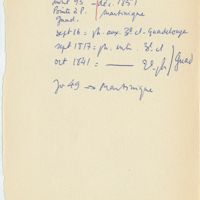 août 95 – déc. 1851
Pointe à P. Martinique
Guad.
sept 16 = ph. aux. 3e cl - Guadeloupe
sept 1817 = ph. 3e cl.
oct 1841 = —— 2e ph Guad
Jv 49 → Martinique